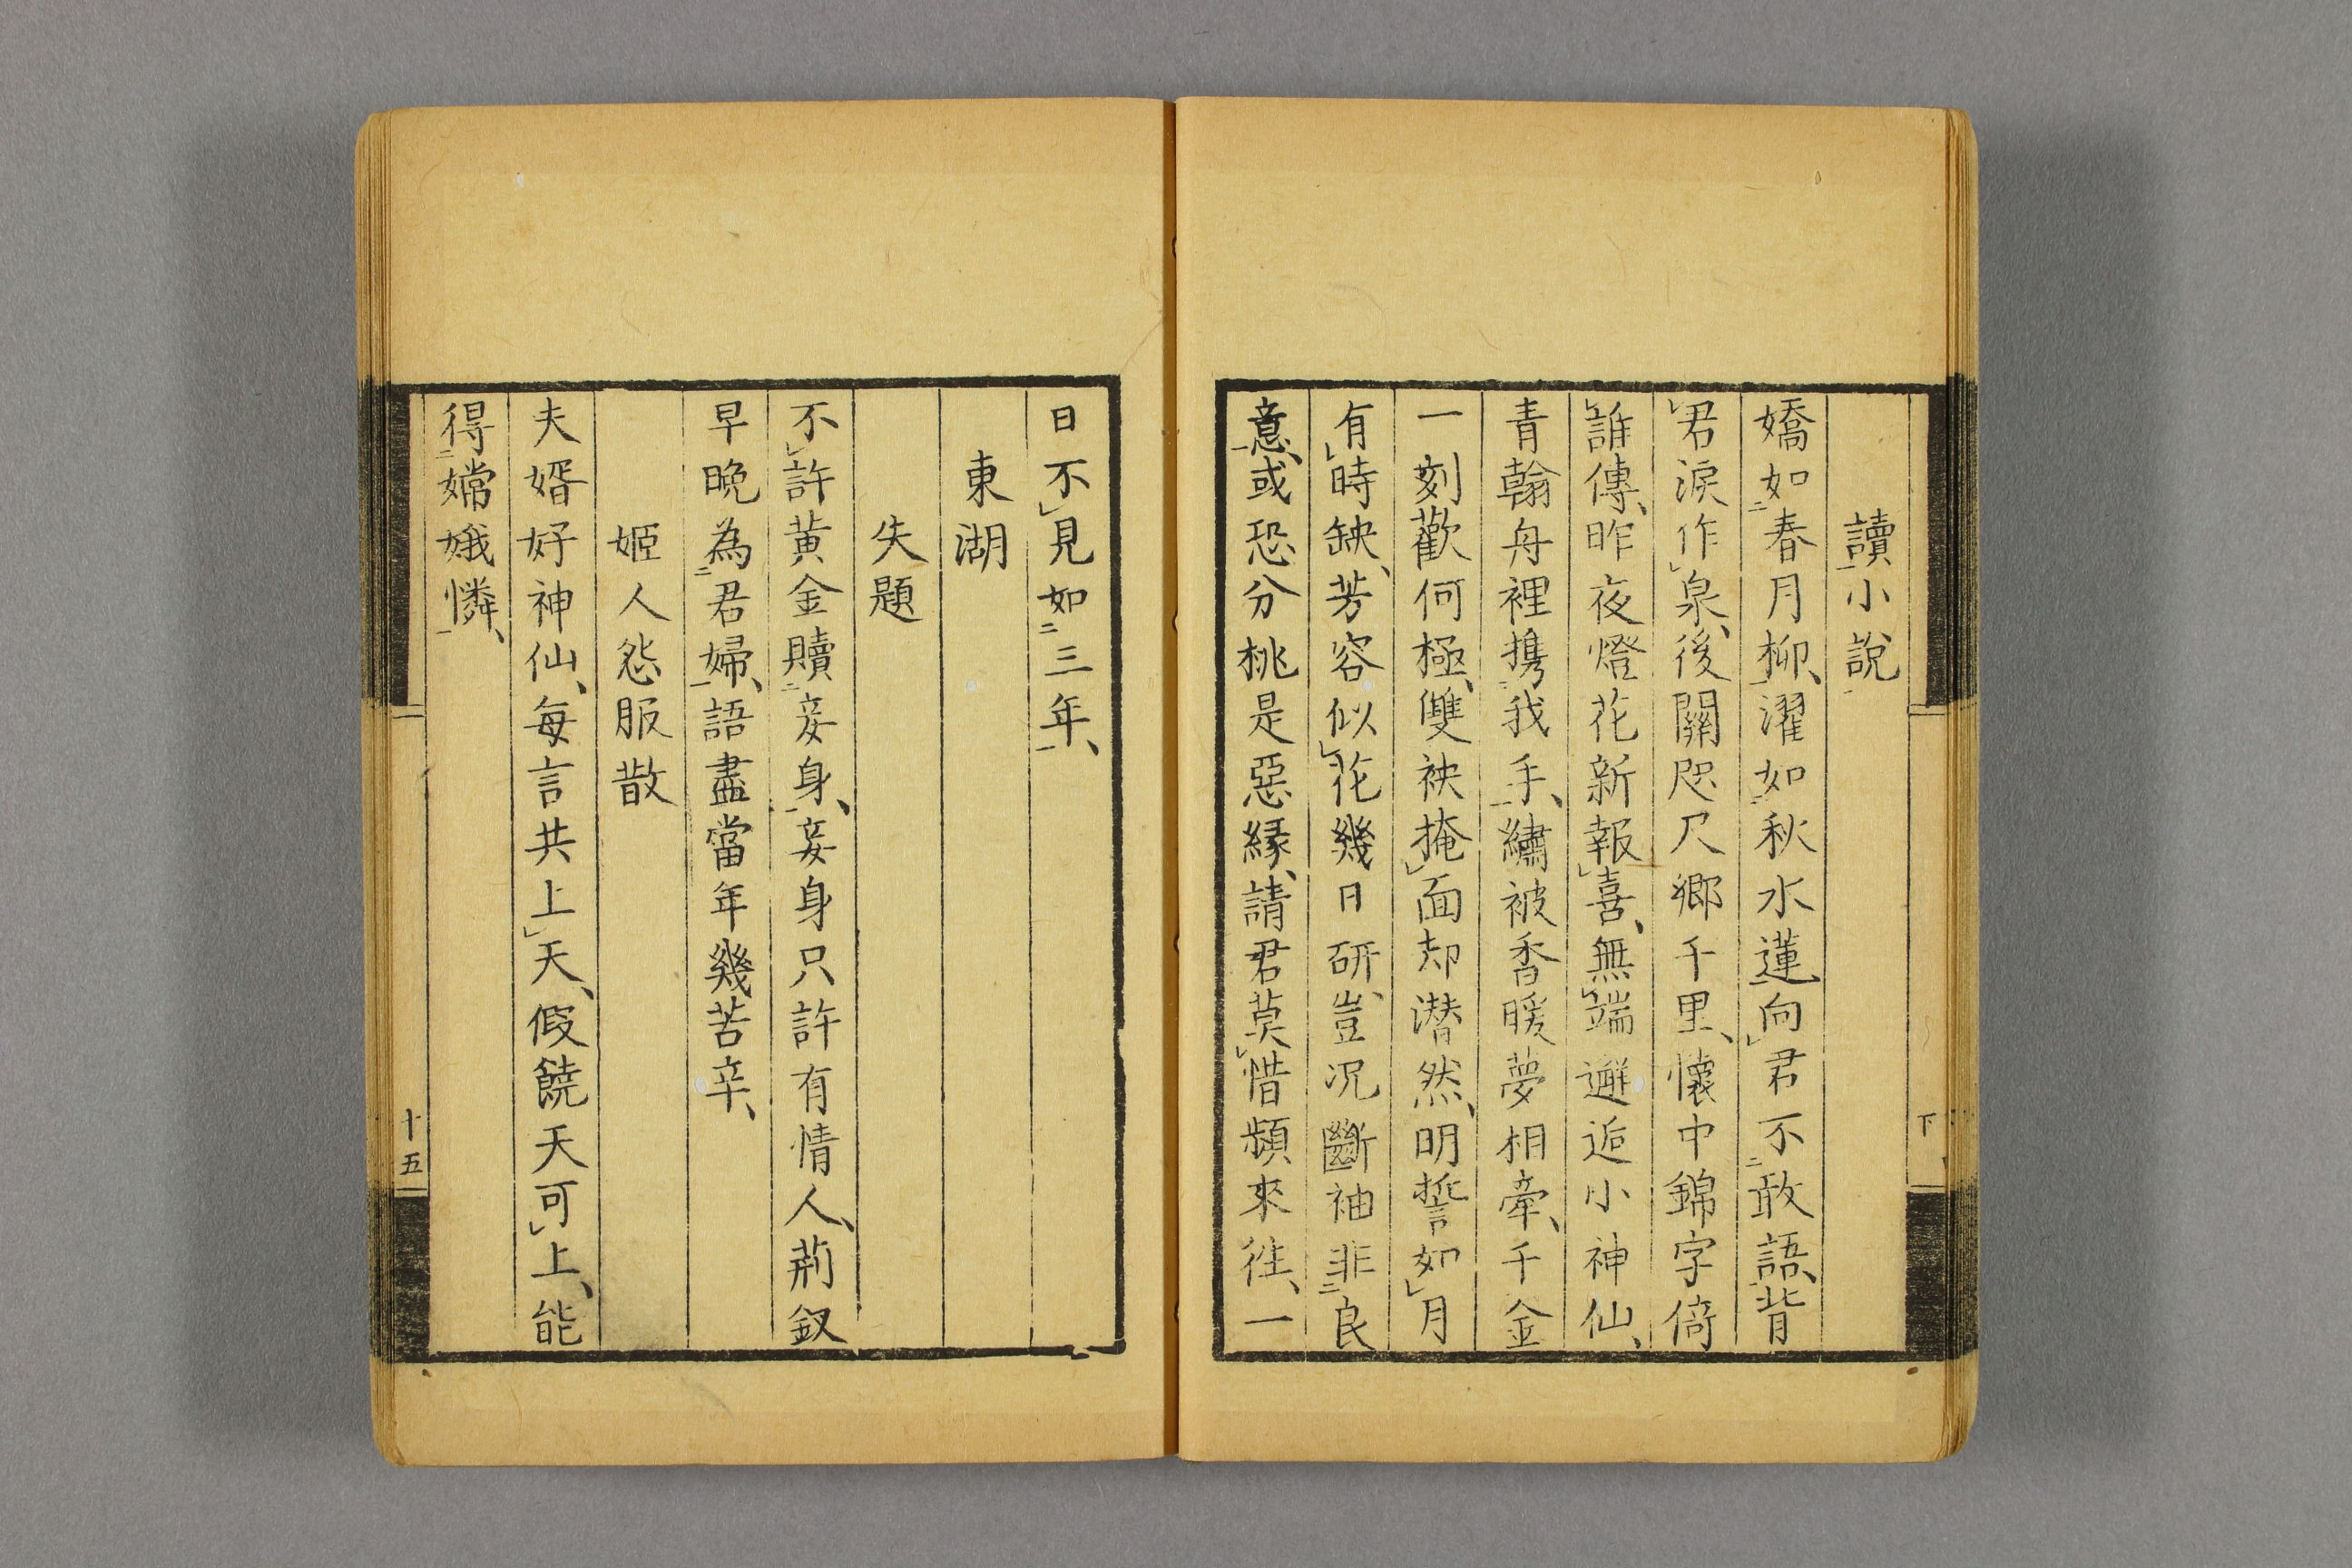 下
讀小說
嬌如春月柳、濯如秋水蓮向君不敢語、背
君淚作泉、後關咫尺鄉千里、懷中錦字倚
誰傳、昨夜燈花新報喜、無端邂逅小神仙、
青翰舟裡携我手、繡被香暖夢相牽、千金
一刻歡何極、雙袂掩面却潛然、明誓如月
有時缺、芳容似花幾日研、豈况斷袖非良
意、或恐分桃是惡緣、請君莫惜頻來往、一
日不見如三年、
東湖
失題
不許黃金贖妾身、妾身只許有情人、荊釵
早晚為君婦、語盡當年幾苦辛、
姬人怨服散
夫婿好神仙、每言共上天、假饒天可上、能
得嫦娥憐、
十五